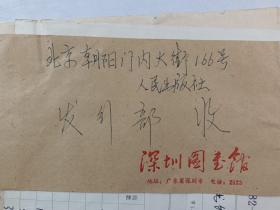 北京朝阳门内大街166号
人民出版社
发行部 收
深圳图书馆
地址：广东省深圳市 电话：2523